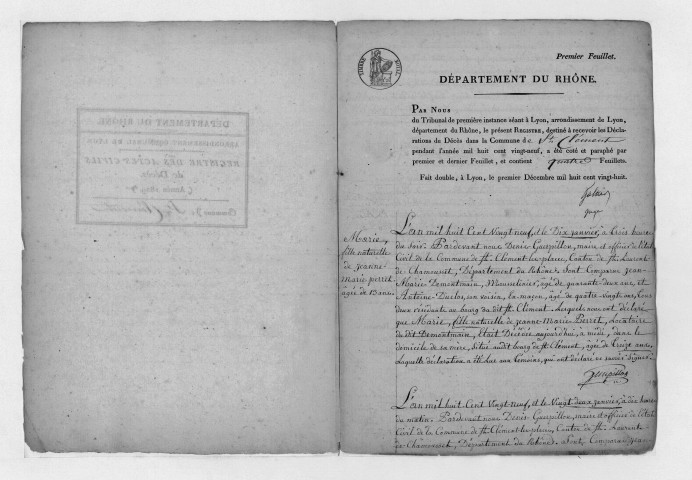 DÉPARTEMENT DU RHÔNE
REGISTRE DES ACTES CIVILS
de Décès
TIMBRE ROYAL
Premier Feuillet.
DÉPARTEMENT DU RHÔNE.
PAR NOUS
du Tribunal de première instance séant à Lyon, arrondissement de Lyon,
département du Rhône, le présent REGISTRE, destiné à recevoir les Décla-
rations de Décès dans la Commune de St. Clément
pendant l'année mil huit cent vingt-neuf, a été coté et paraphé par
premier et dernier Feuillet, et contient quatre Feuillets.
Fait double, à Lyon, le premier Décembre mil huit cent vingt-huit.
juge
Marie,
fille naturelle
de jeanne
marie perret
agée de 13 ans.
L'an mil huit Cent Vingt neuf, et le Dix janvier, à trois heures
du soir. Pardevant nous Denis Guerpillon, maire et officier de l'état
Civil de la Commune de St. Clément les places, Canton de St. Laurent
de Chamousset, Département du Rhône. Sont Comparus jean
Marie Demontmain, Mousselinier, âgé de quarante deux ans, et
Antoine Duclos, son voisin, maçon, âgé de quatre-vingts ans, tous
deux résidants au bourg du dit St. Clément. Lesquels nous ont déclaré
que Marie, fille naturelle de jeanne-Marie Perret, Locataire
du dit Demontmain, Etait Décédée aujourd'hui, à midi, dans le
domicile de sa mère, situé audit bourg de St. Clément, agée de Treize ans.
Laquelle déclaration a été lue aux témoins, qui ont déclaré ne savoir signer.
Guerpillon
L'an mil huit Cent Vingt neuf, et le Vingt deux janvier, à dix heures
du matin. Pardevant nous Denis Guerpillon, maire et officier de l'état
Civil de la Commune de St. Clément les places, Canton de St. Laurent
de Chamousset, Département du Rhône. Sont Comparus jean